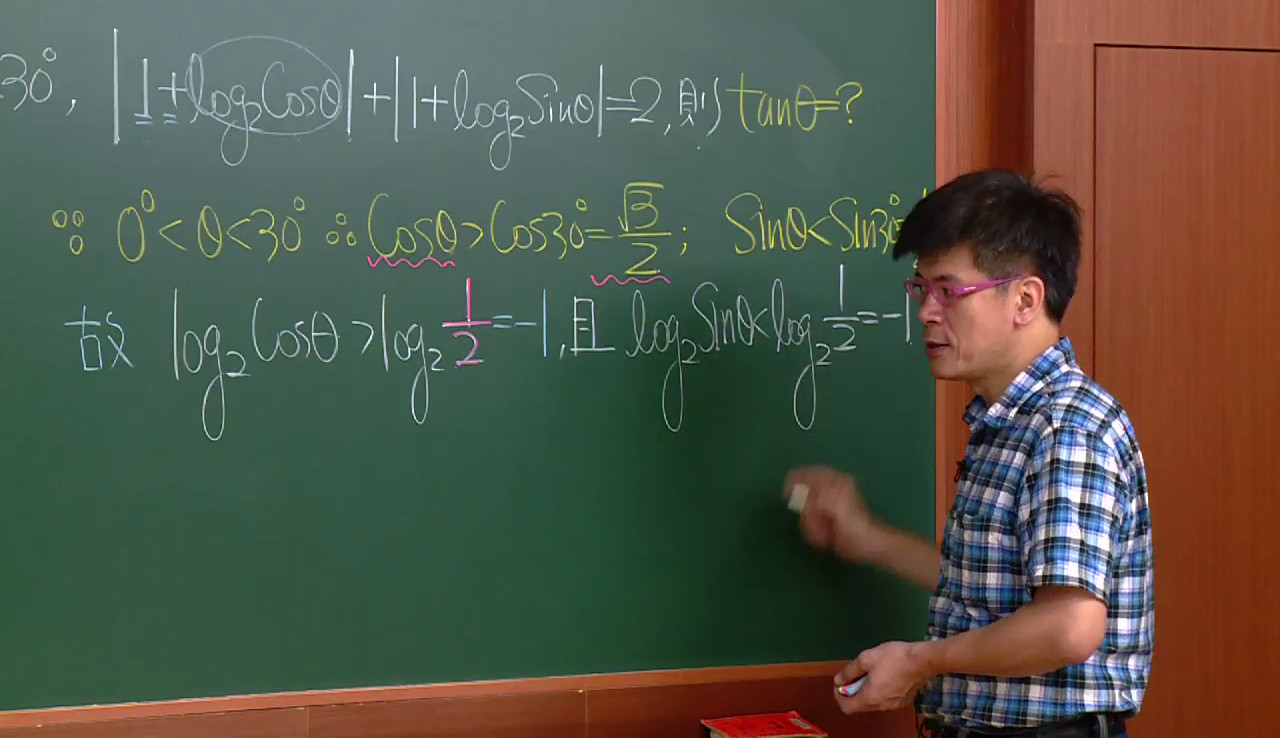 30°, |1+log₂Cosθ|+|1+log₂Sinθ|=2, 則 tanθ=?
∵ 0°<θ<30° ∴ Cosθ>Cos30°=√3/2; Sinθ<Sin30°
故 log₂Cosθ>log₂1/2=-1, 且 log₂Sinθ<log₂1/2=-1